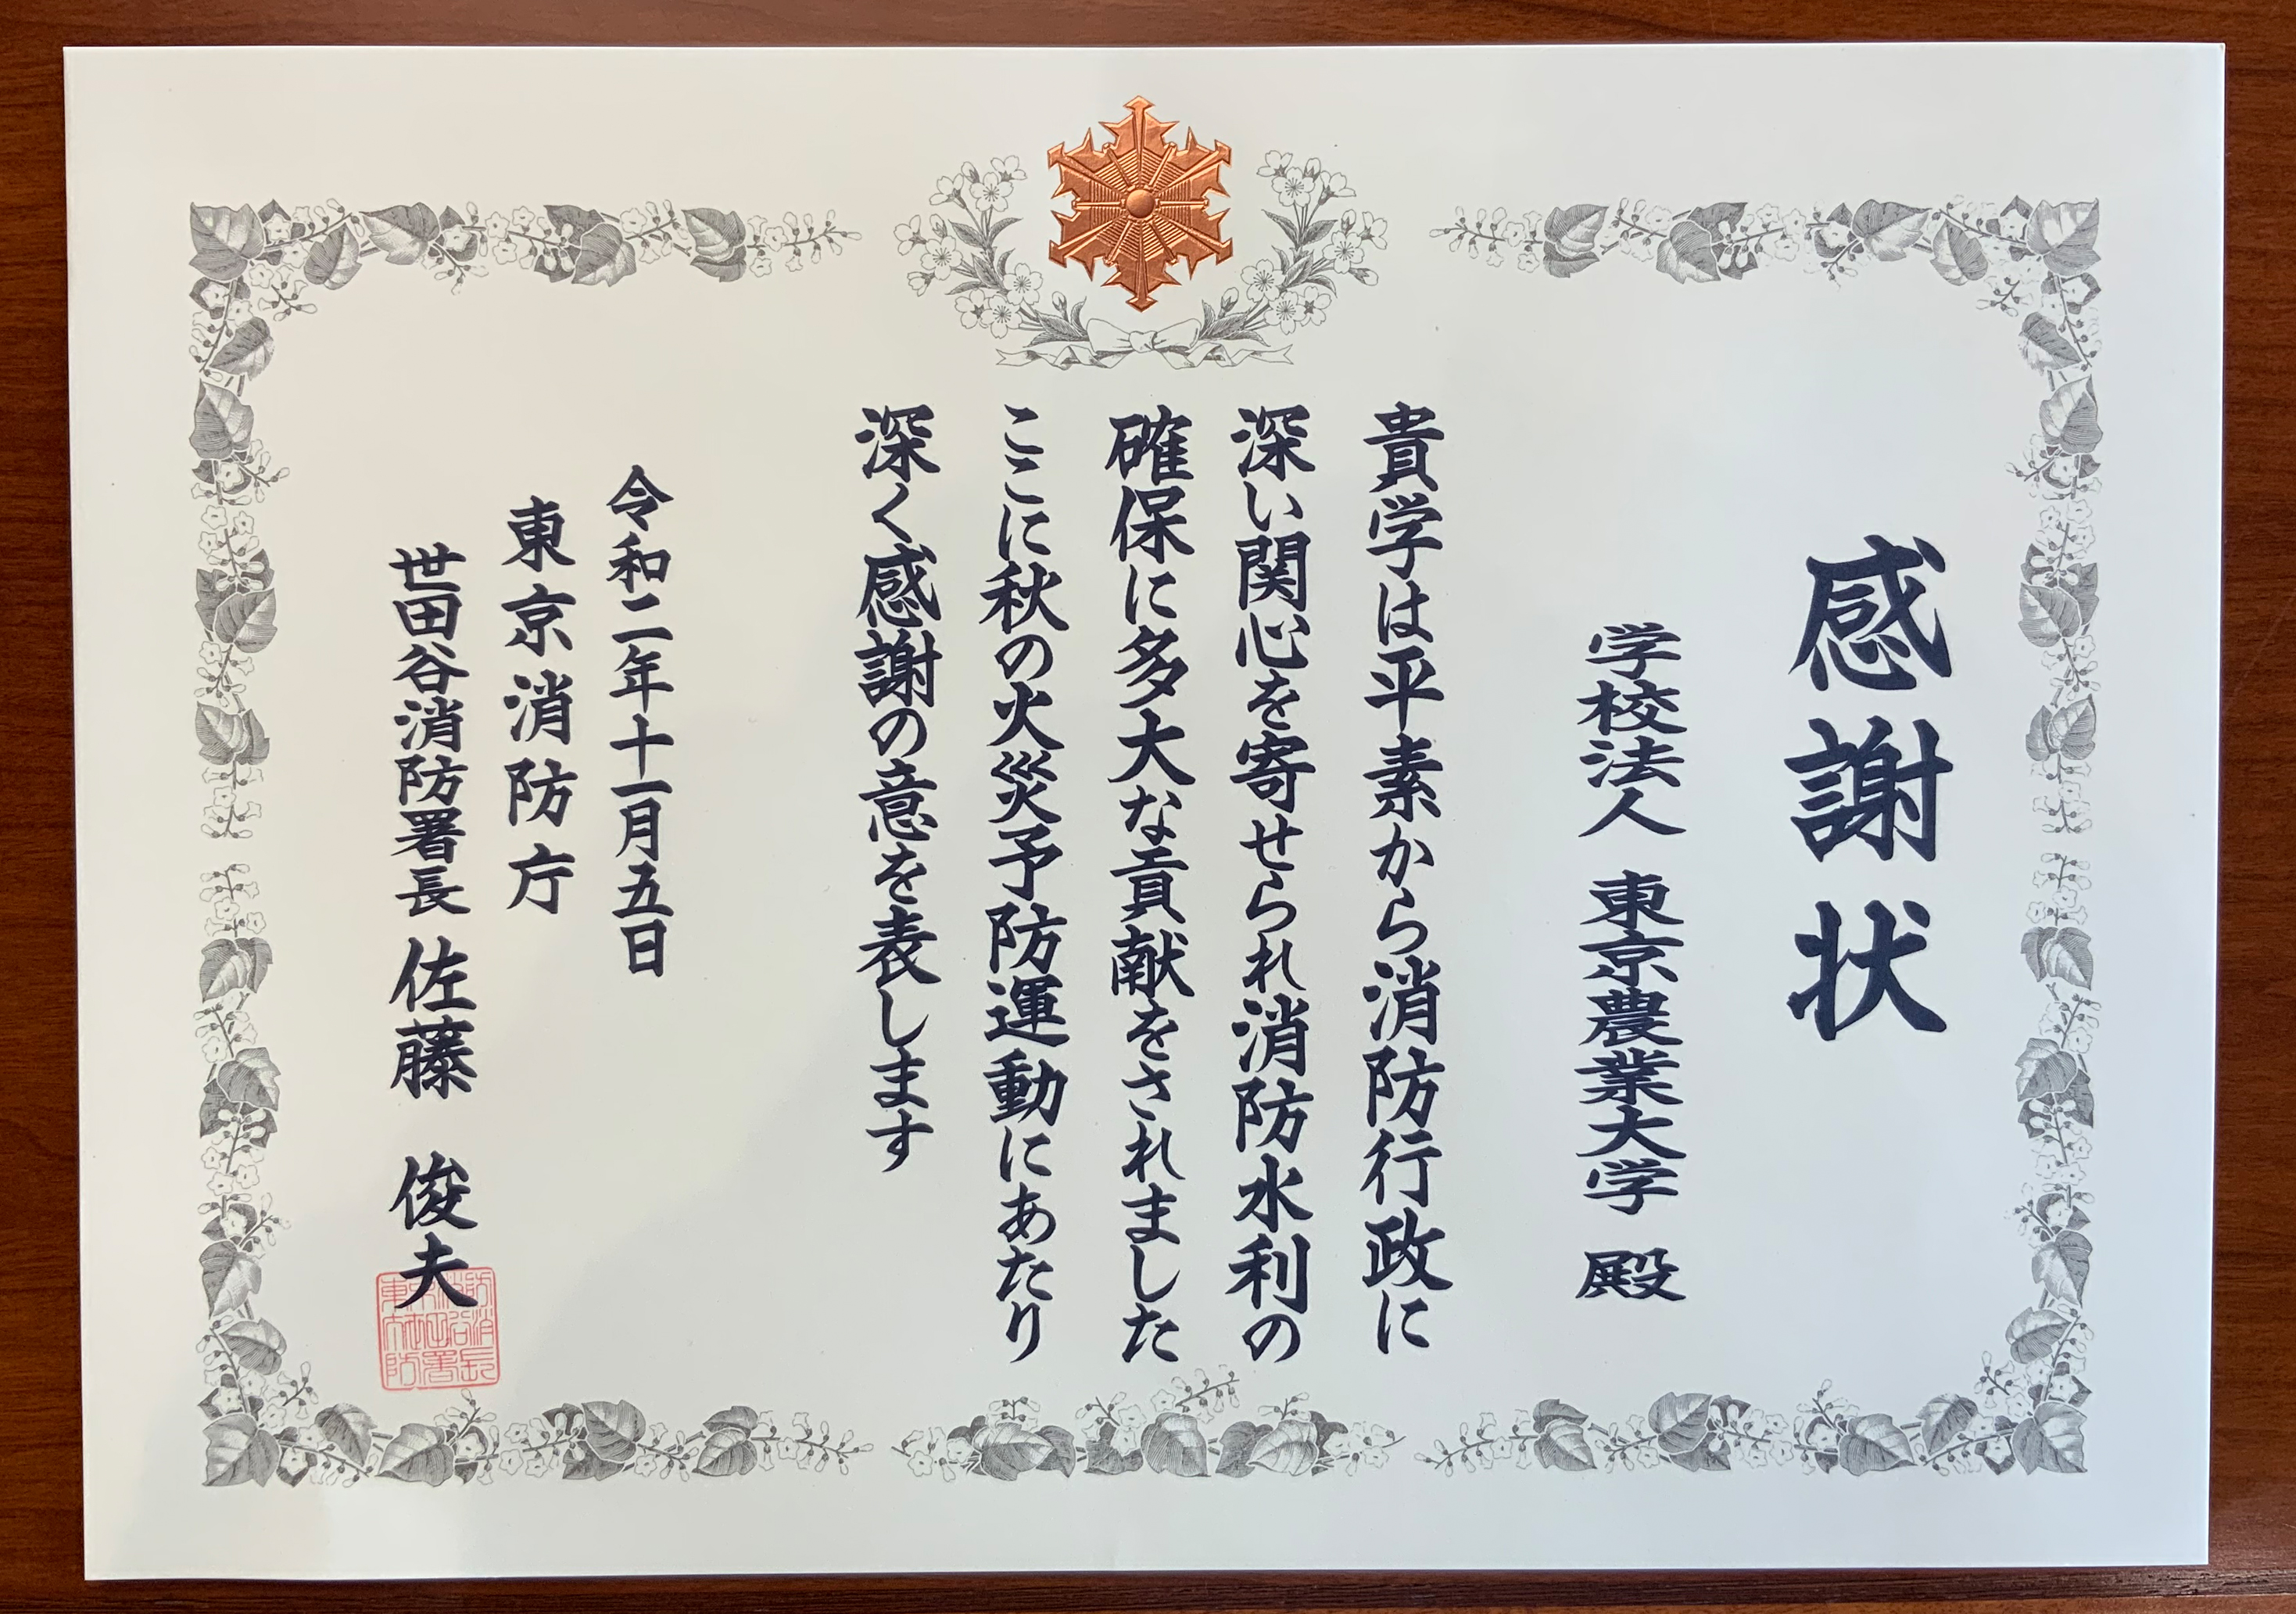 感謝状
学校法人 東京農業大学 殿
貴学は平素から消防行政に
深い関心を寄せられ消防水利の
確保に多大な貢献をされました
ここに秋の火災予防運動にあたり
深く感謝の意を表します
令和二年十一月五日
東京消防庁
世田谷消防署長 佐藤 俊夫